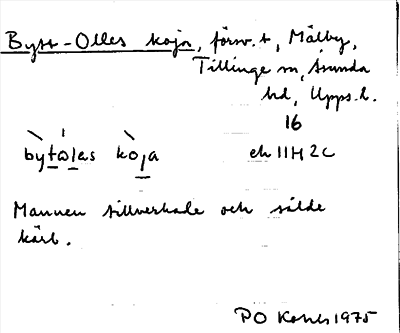 Bytt-Olles koja, försv. t, Målby,
Tillinge sn, Åsunda
hd, Upps. l.
16
bytωlas kοja ek 11H 2c
Mannen tillverkade och sålde
kärl.
PO 1975